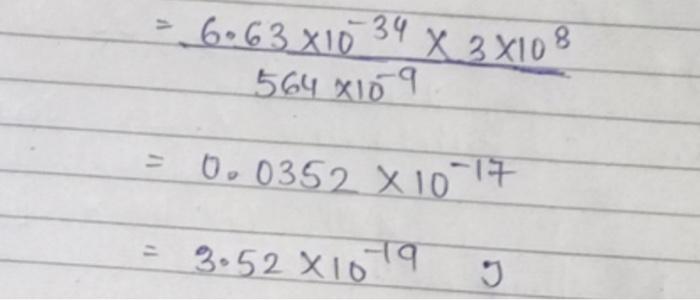 = 6.63 ×10⁻³⁴ × 3 ×10⁸
564 ×10⁻⁹
= 0.0352 ×10⁻¹⁷
= 3.52 ×10⁻¹⁹ J